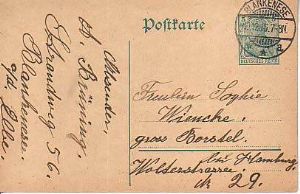 Postkarte
BLANKENESE
Absender,
A. Brüning,
Strandweg 56.
Blankenese
a/d. Elbe.
Fräulein Sophie
Wienche,
gross Borstel.
bei Hamburg
Wolderstrasse
№ 29.